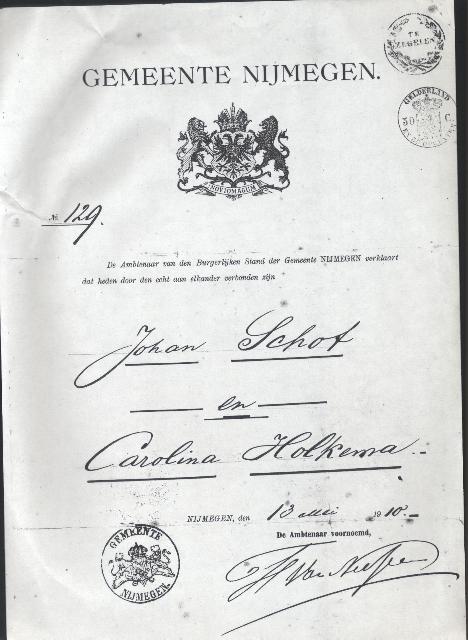 TE
ZEGELEN
GEMEENTE NIJMEGEN.
GELDERLAND
30 C.
NOVIOMAGUM
№ 129.
De Ambtenaar van den Burgerlijken Stand der Gemeente NIJMEGEN verklaart
dat heden door den echt aan elkander verbonden zijn
Johan Schot
en
Carolina Holkema.
NIJMEGEN, den 13 Mei 1910.
De Ambtenaar voornoemd,
GEMEENTE
NIJMEGEN.